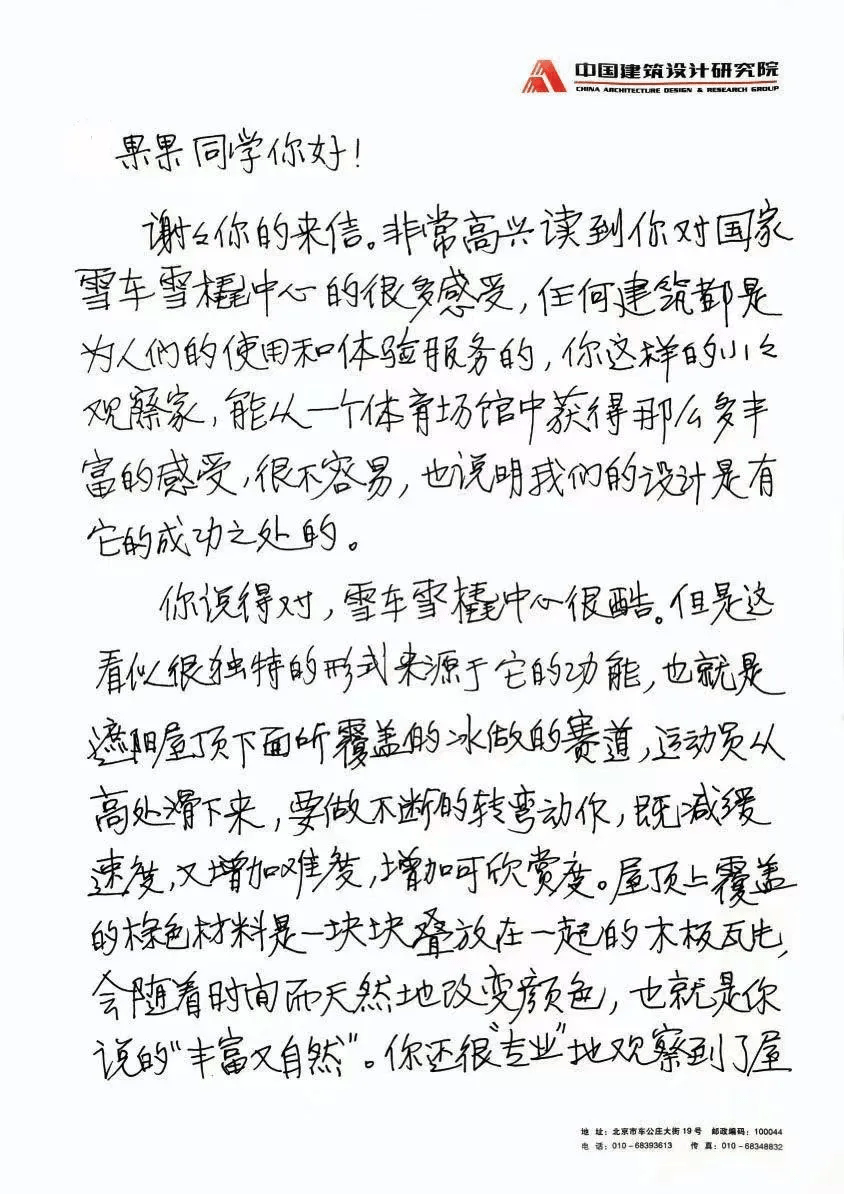 中国建筑设计研究院
CHINA ARCHITECTURE DESIGN & RESEARCH GROUP
果果同学你好！
谢々你的来信。非常高兴读到你对国家
雪车雪橇中心的很多感受，任何建筑都是
为人们的使用和体验服务的，你这样的小々
观察家，能从一个体育场馆中获得那么多丰
富的感受，很不容易，也说明我们的设计是有
它的成功之处的。
你说得对，雪车雪橇中心很酷。但是这
看似很独特的形式来源于它的功能，也就是
遮阳屋顶下面所覆盖的冰做的赛道，运动员从
高处滑下来，要做不断的转弯动作，既减缓
速度，又增加难度，增加可欣赏度。屋顶上覆盖
的棕色材料是一块块叠放在一起的木板瓦片，
会随着时间而天然地改变颜色，也就是你
说的“丰富又自然”。你还很“专业”地观察到了屋
地 址：北京市车公庄大街19号 邮政编码：100044
电 话：010-68393613 传 真：010-68348832